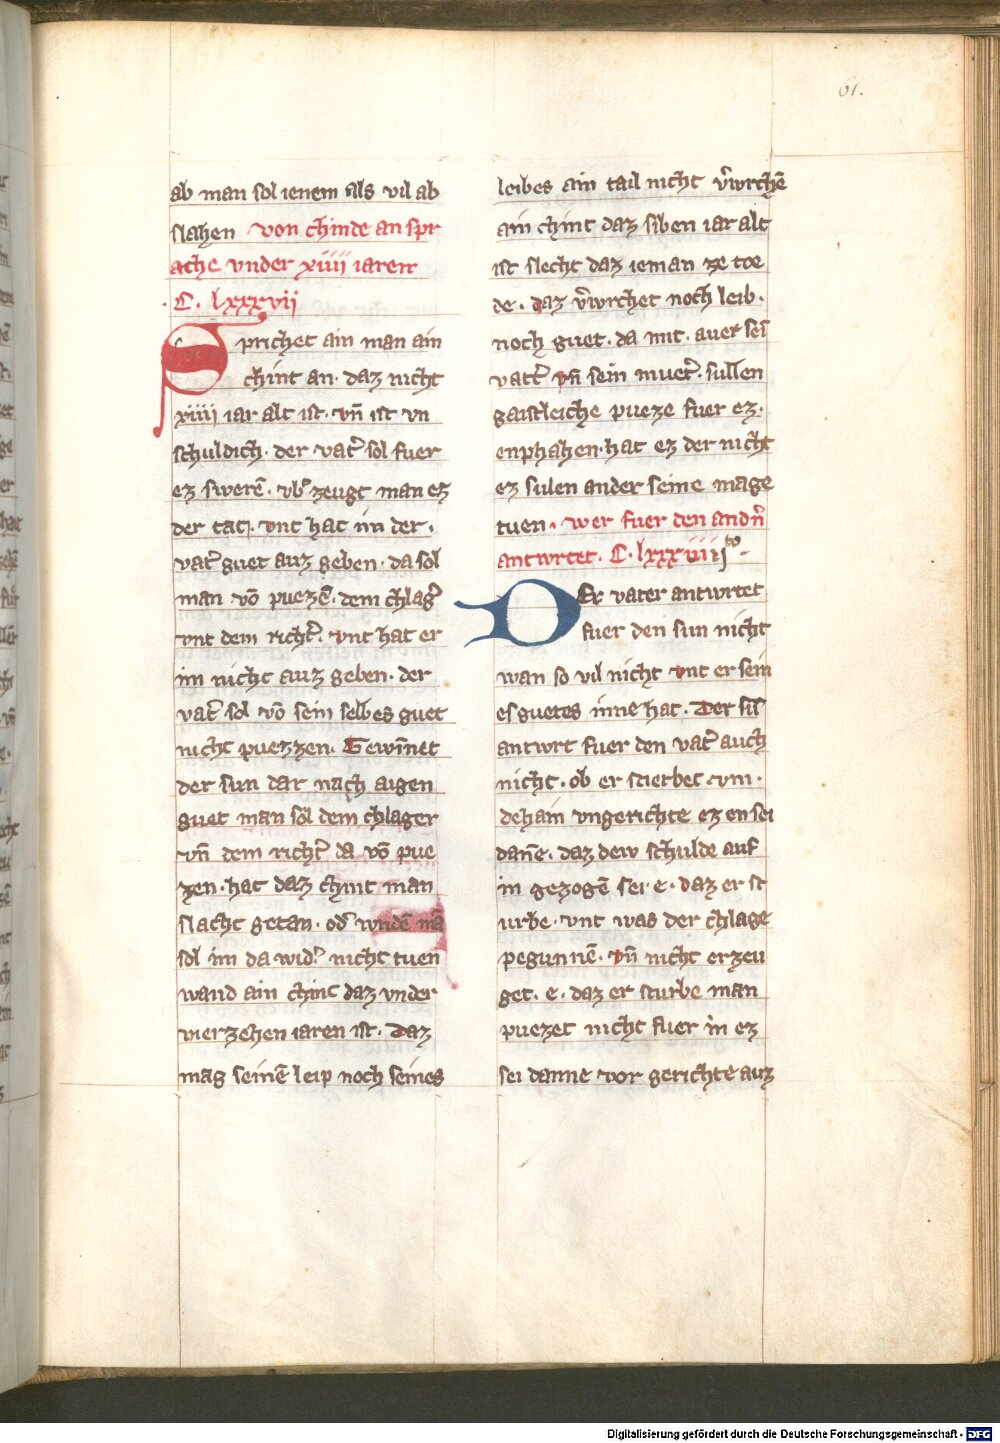 61.
ab man sol ienem als vil ab
slahen von chinde an spr
ache vnder xiiii iaren
C. lxxxvii
Sprichet ain man ain
chint an. daz nicht
xiiii iar alt ist. vn̄ ist vn
schuldich. der vat̉ sol fuer
ez swerē. vb̉ zeugt man ez
der tat. vnt hat im der.
vat̉ guet auz geben. da sol
man vō puezē. dem chlag̉
vnt dem richt̉. vnt hat er
im nicht auz geben. der
vat̉ sol vō sein selbes guet
nicht puezzen. Gewīnet
der sun dar nach aigen
guet man sol dem chlager
vn̄ dem richt̉ da vō pue
zen. hat daz chint man
slacht getan. od̉ wndē nā
sol im da wid̉ nicht tuen
wand ain chint daz vnder
vierzehen iaren ist. Daz
mag seinē leip noch seines
leibes ain tail nicht v̉wrchē
ain chint daz siben iar alt
ist slecht daz ieman ze toe
de. daz v̉wrchet noch leib.
noch guet. da mit. auer sei
vatt̉ vn̄ sein muet̉. sullen
gaistleiche pueze fuer ez.
enphahen. hat ez der nicht
ez sulen ander seine mage
tuen. wer fuer den andn̉
antwrtet. C. lxxxviiiͭͦ
Der vater antwrtet
fuer den sun nicht
wan so vil nicht vnt er sein
es guetes inne hat. Der sũ
antwrt fuer den vat̉ auch
nicht. ob er stierbet vm.
dehain vngerichte ez en sei
dane. daz dew schulde auf
in gezogē sei. e. daz er st
urbe. vnt was der chlage
pegunnē. vn̄ nicht erzeu
get. e. daz er sturbe man
puezet nicht fuer in ez
sei danne vor gerichte auz
Digitalisierung gefördert durch die Deutsche Forschungsgemeinschaft - DFG